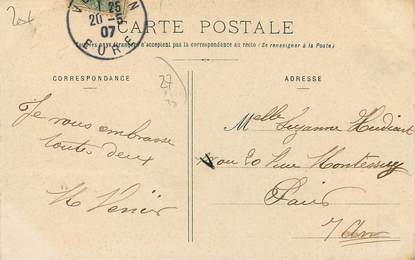 1 25
20-5
07
EURE
CARTE POSTALE
pays étrangers n'acceptent pas la correspondance au recto (Se renseigner à la Poste)
CORRESPONDANCE
ADRESSE
27
Je vous embrasse
toutes deux
Melle Suzanne
20 Rue Monttessuy
Paris
7 Arr